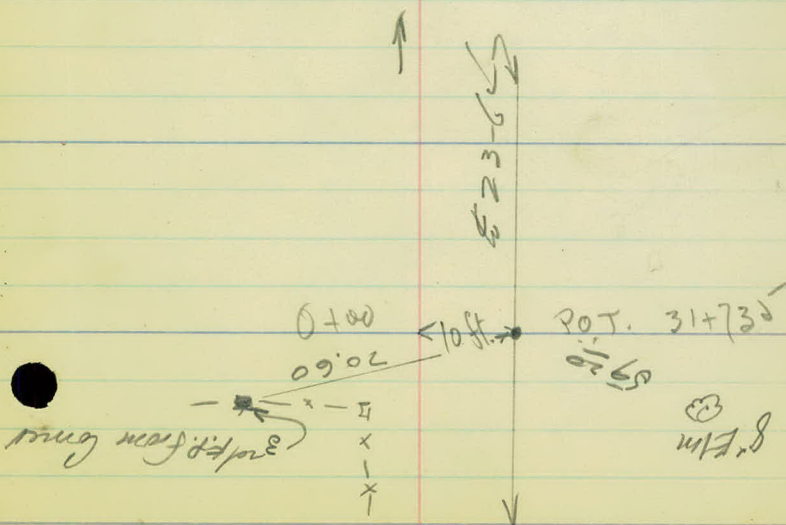 ℄ 23-6
0+00
10 ft.
P.O.T. 31+73
20.60
8" Elm
3rd F.P. from Corner